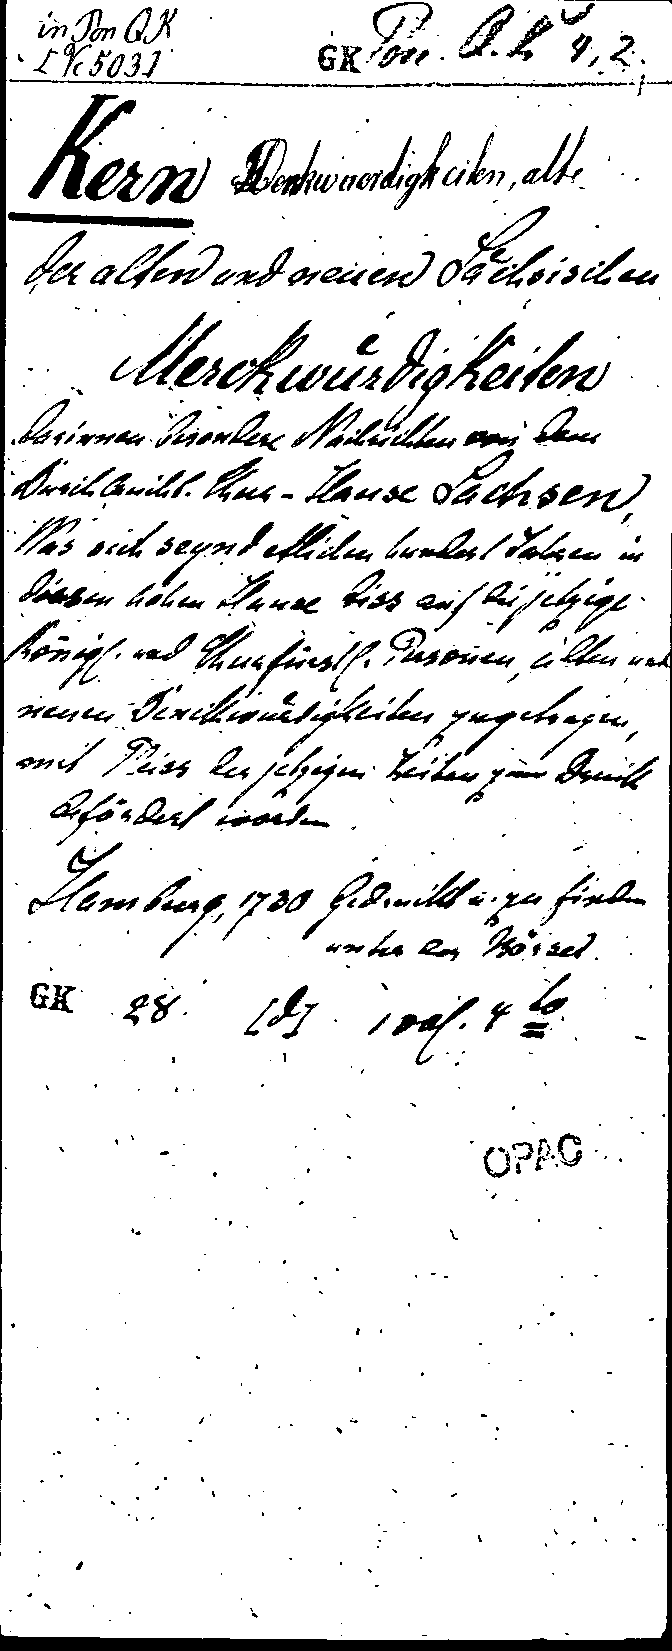 in Pon QK
[Vc 503]
GK Pon. Q.K 4,2.
Kern Denkwuerdigkeiten, alte
der alten und neuen Sächsischen
Merckwürdigkeiten
darinnen besondere Nachrichten von dem
Durchlaucht. Chur-Hause Sachsen,
Was sich seynd etlichen hundert Jahren in
diesen hohen Hause biss auf die jetzige
Königl. und Churfürstl. Personen, alten und
neuen Denckwürdigkeiten zugetragen,
mit Fleiss der jetzigen Zeiten zum Druck
befördert worden
Hamburg, 1730 Gedruckt u. zu finden
unter der Börse.
GK 28. [d] 1 vol. 4 to
OPAC